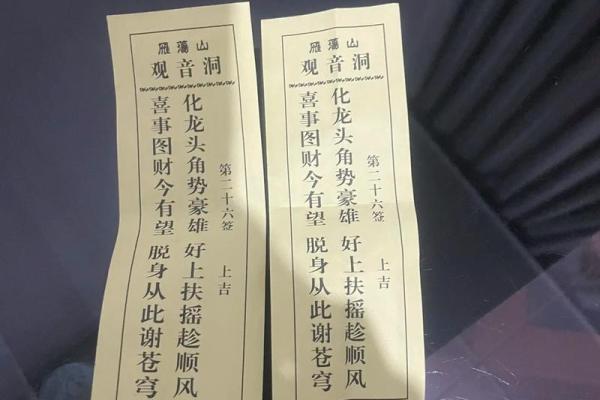 雁荡山
观音洞
第二十六签 上吉
化龙头角势豪雄 好上扶摇趁顺风
喜事图财今有望 脱身从此谢苍穹
雁荡山
观音洞
第二十六签 上吉
化龙头角势豪雄 好上扶摇趁顺风
喜事图财今有望 脱身从此谢苍穹